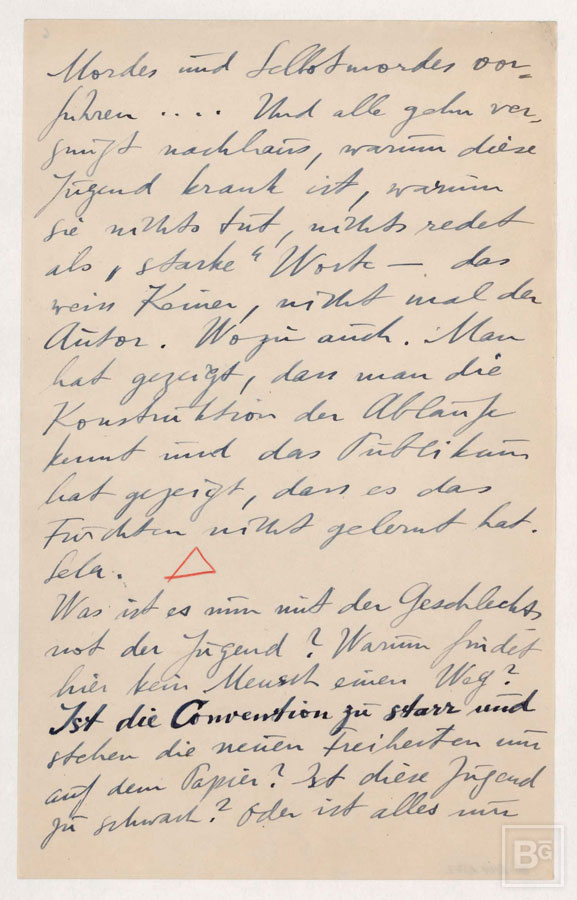 Mordes und Selbstmordes vor-
führen .... Und alle gehn ver-
gnügt nachhaus, warum diese
Jugend krank ist, warum
sie nichts tut, nichts redet
als „starke“ Worte — das
weiss Keiner, nicht mal der
Autor. Wozu auch. Man
hat gezeigt, dass man die
Konstruktion der Abläufe
kennt und das Publikum
hat gezeigt, dass es das
Fürchten nicht gelernt hat.
Sela.
Was ist es nun mit der Geschlechts
not der Jugend? Warum findet
hier kein Mensch einen Weg?
Ist die Convention zu starr und
stehen die neuen Freiheiten nur
auf dem Papier? Ist diese Jugend
zu schwach? Oder ist alles nur
BG